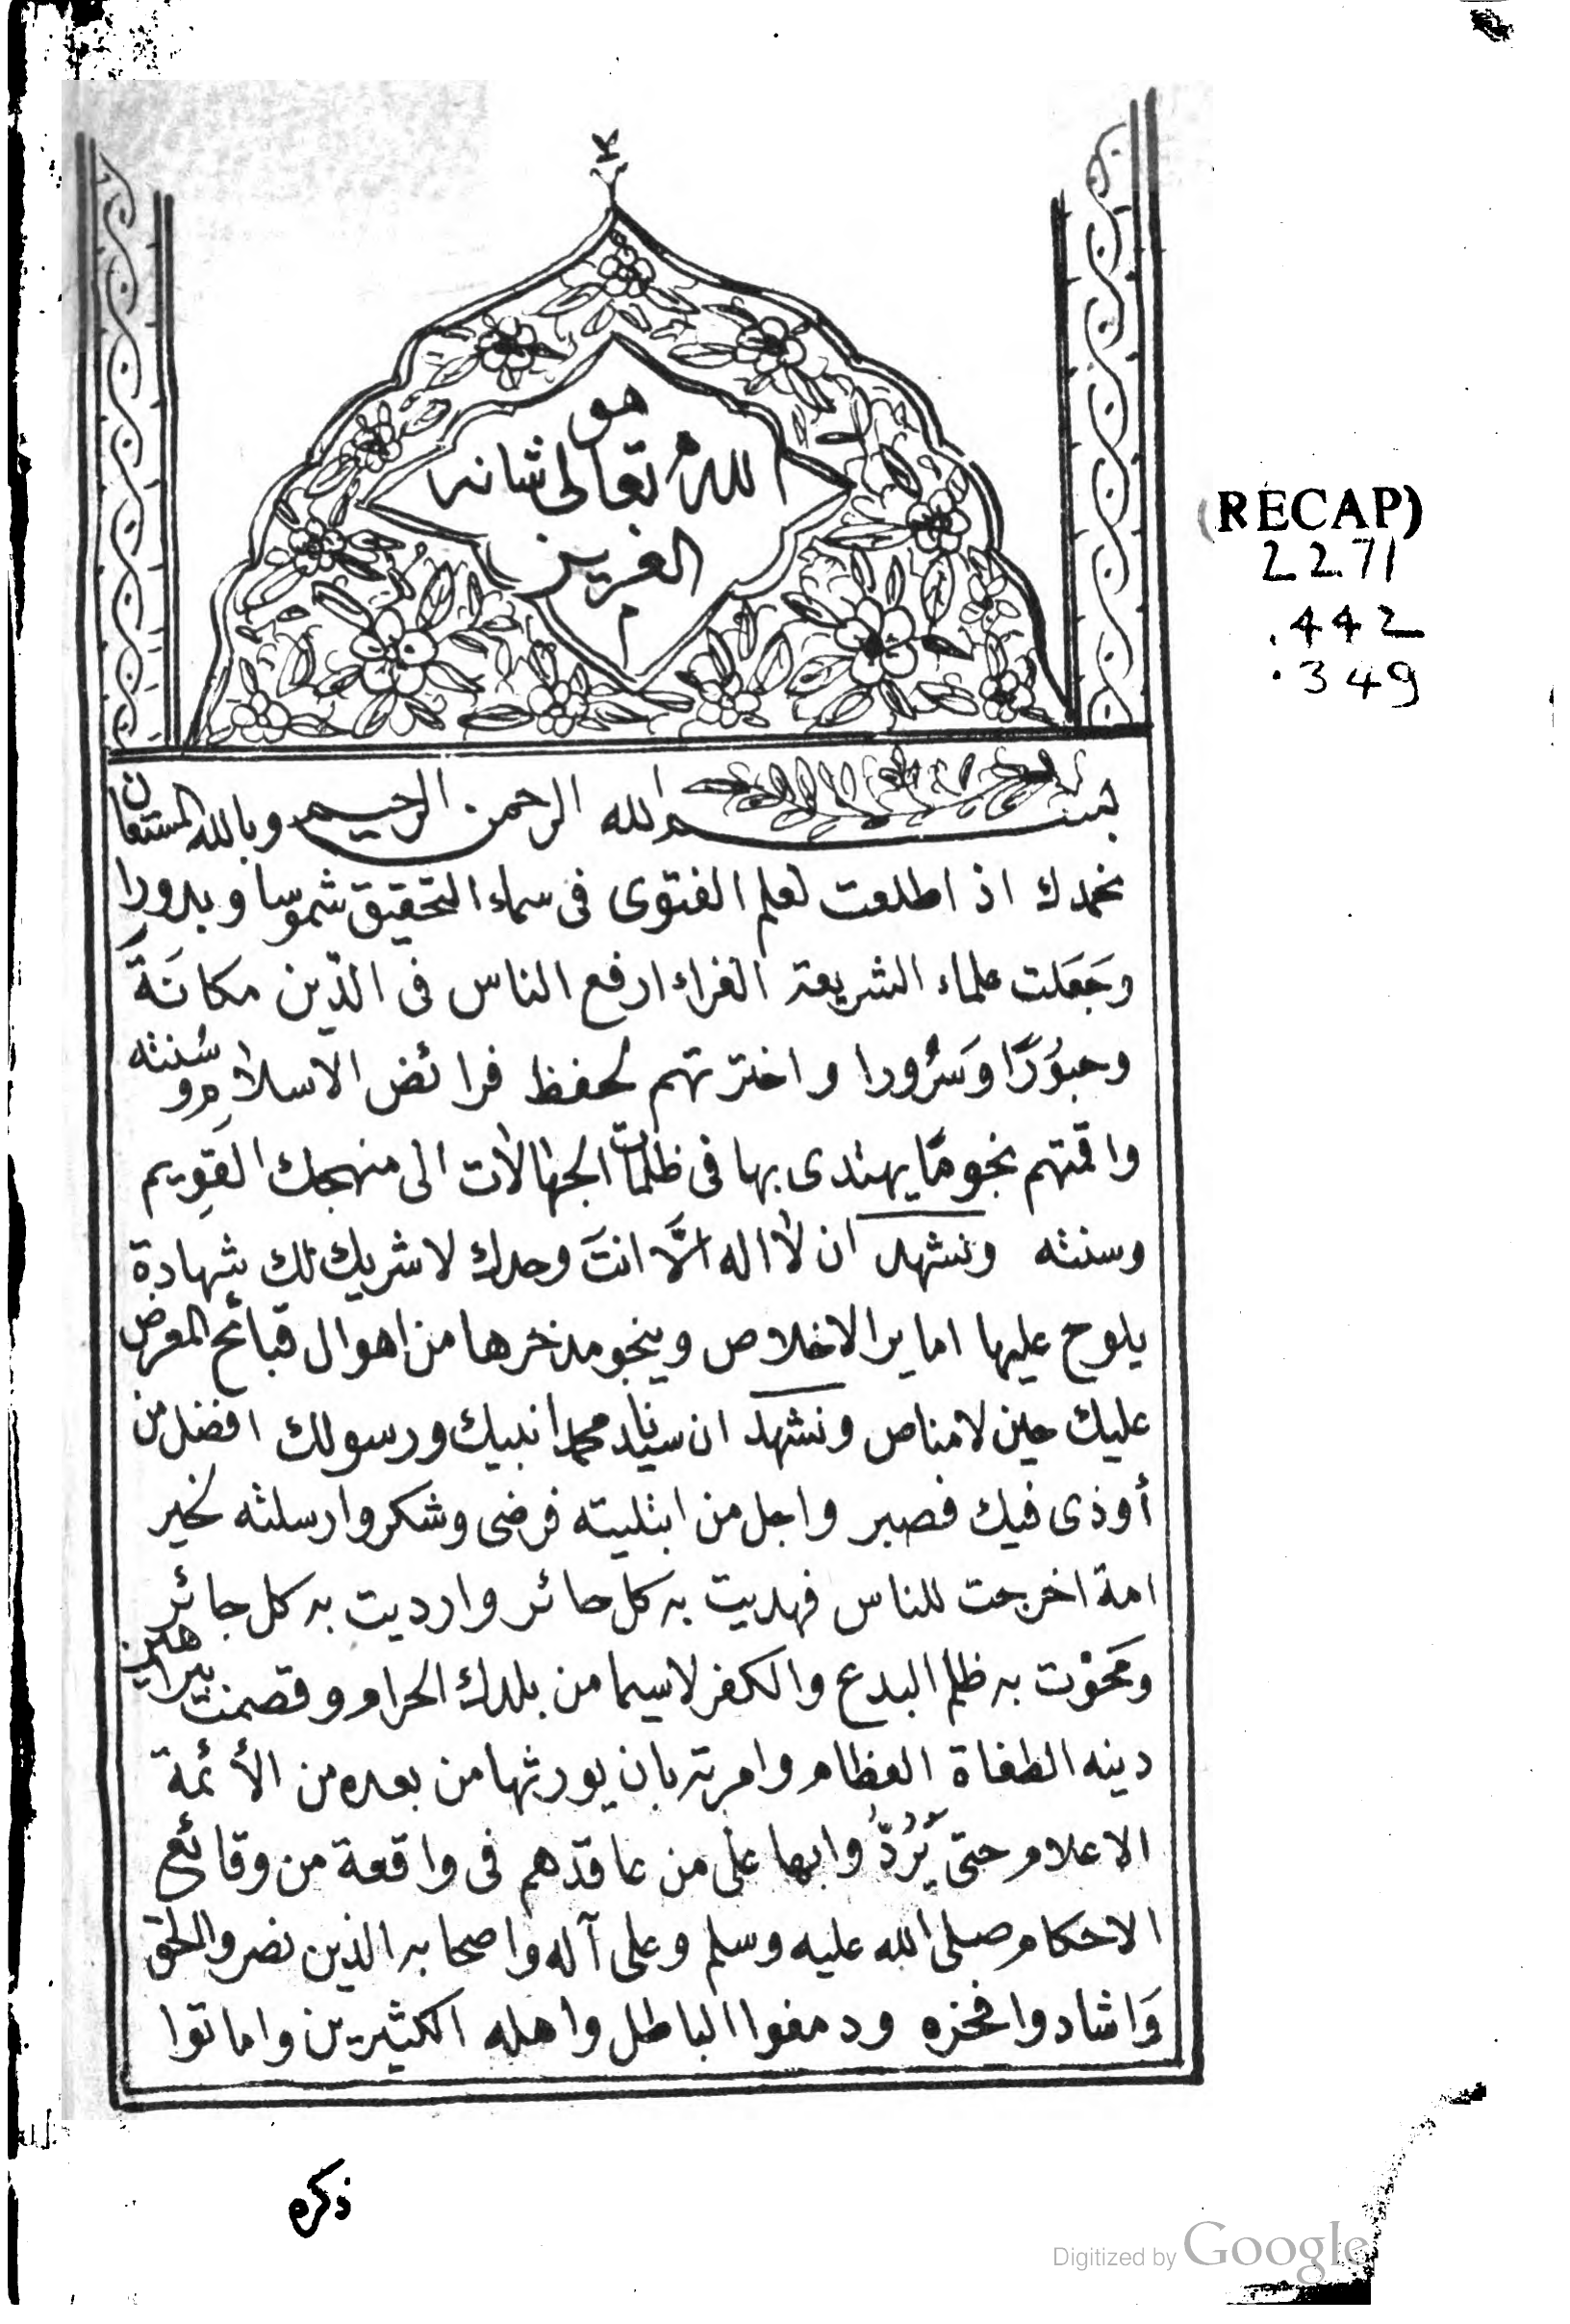 هو
الله تعالى شانه
العزيز
م
(RECAP)
2271
.442
.349
بسم الله الرحمن الرحيم وبالله المستعان
نحمدك اذ اطلعت لعلم الفتوى فى سماء التحقيق شموسا وبدورا
وجَعَلت علماء الشريعة الغراء ارفع الناس فى الدّين مكانَةً
وحبوُرًا وَسَرُورا واخترتهم لحفظ فرائض الاسلامِ وسُنته
واقمتهم نجومًا يهتدى بها فى ظلمات الجهالات الى منهجك القوِيم
وسنته ونشهد ان لا اله الَّا انتَ وحدك لا شريك لك شهادة
يلوح عليها امايرا الاخلاص وينجو مدخرها من اهوال قبائح المعرض
عليك حين لا مناص ونشهد ان سيدنا محمدا نبيك ورسولك افضل من
أوذى فيك فصبر واجل من ابتليته فرضى وشكر وارسلته لخير
امة اخرجت للناس فهديت به كل حائر وارديت به كل جائر
ومَحَوْت به ظلم البدع والكفر لاسيما من بلدك الحرام وقصمت ببراهين
دينه الطغاة العظام وامرته بان يورثها من بعده من الأئمة
الاعلام حتى يَرُدُّوا بها على من عاقدهم فى واقعة من وقائع
الاحكام صلى الله عليه وسلم وعلى آله واصحابه الذين نصروا الحق
وَاشادوا فخره ودمغوا الباطل واهله الكثيرين واماتوا
ذكره
Digitized by Google